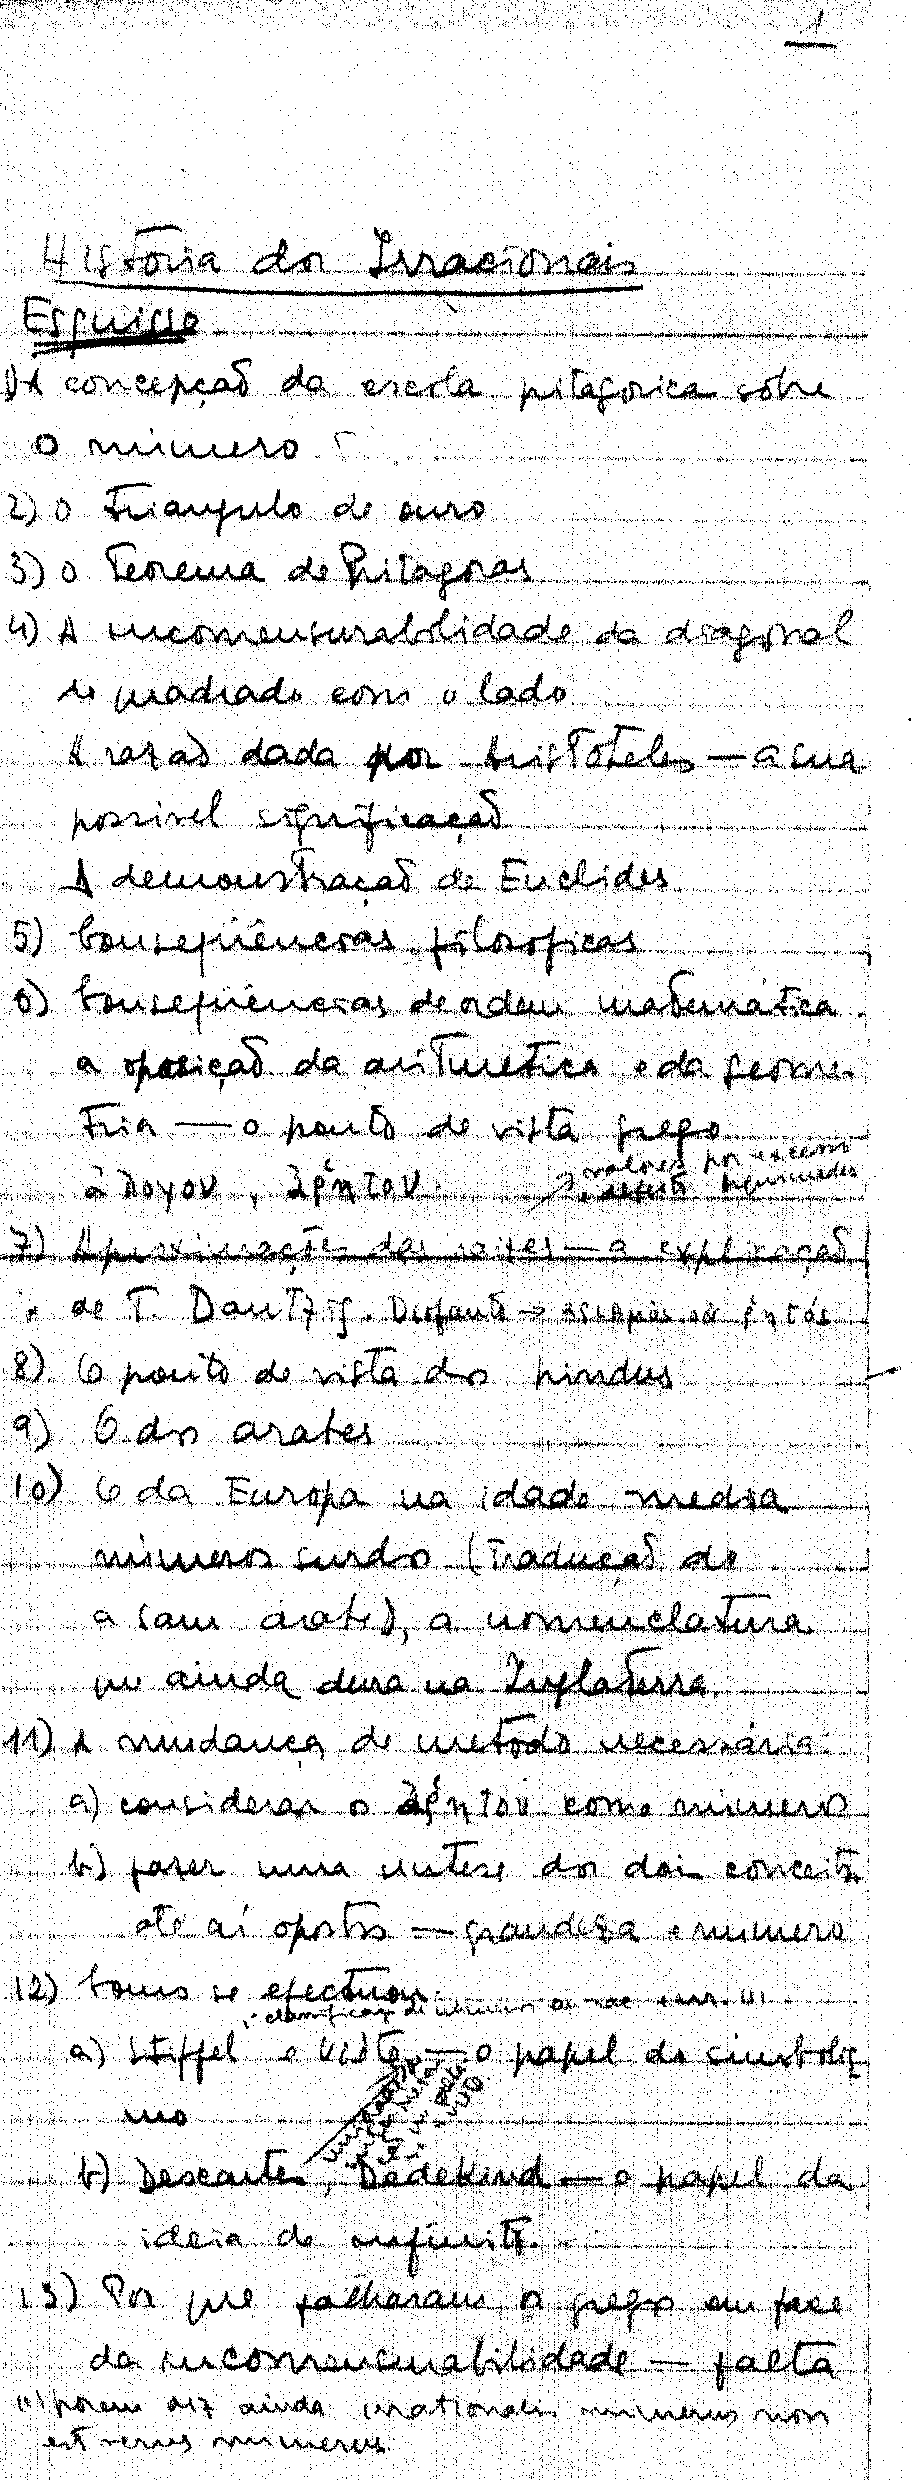 1
História dos Irracionais
Esquisso
1) A concepção da escola pitagorica sôbre
o número
2) O triangulo de ouro
3) O Teorema de Pitagoras
4) A incomensurabilidade da diagonal
do quadrado com o lado
A razão dada por Aristoteles — a sua
possivel significação
A demonstração de Euclides
5) Consequências filosoficas
6) Consequências de ordem matemática.
a oposição da aritmetica e da geome-
tria — o ponto de vista grego
ἄλογον, ἄρρητον.
valores por excesso
e defeito Arquimedes
7) Aproximações das raizes — a explicação
de T. Dantzig. Diofanto →
8) O ponto de vista dos hindus
9) O dos arabes
10) O da Europa na idade media
números surdos (Tradução do
asam arabe), a nomenclatura
que ainda dura na Inglaterra
11) A mudança de metodo necessária:
a) considerar o ἄρρητον como número
b) fazer uma sintese dos dois conceitos
até aí opostos — grandeza e numero
12) Como se efectuou
classificação de
a) Stiffel e Viète — o papel do simbolis
mo
b) Descartes, Dedekind — o papel da
ideia de infinito.
13) Por que falharam os gregos em face
da incomensurabilidade — falta
porem diz ainda irrationalis numerus non
est verus numerus